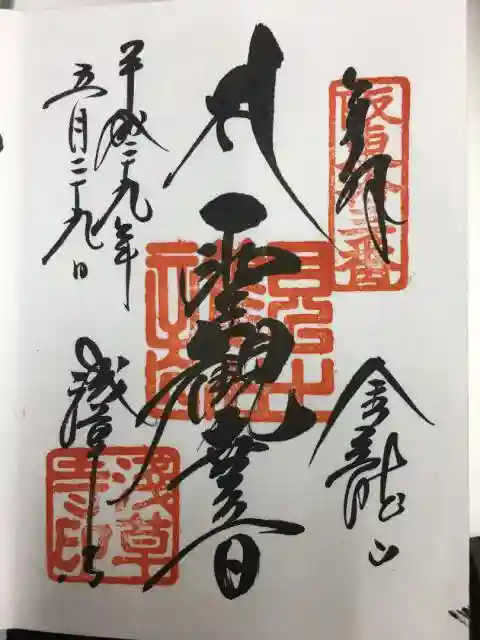 奉拝
坂東十三番
金龍山
聖觀世音
平成二十九年
五月二十九日
淺草寺
淺草寺印